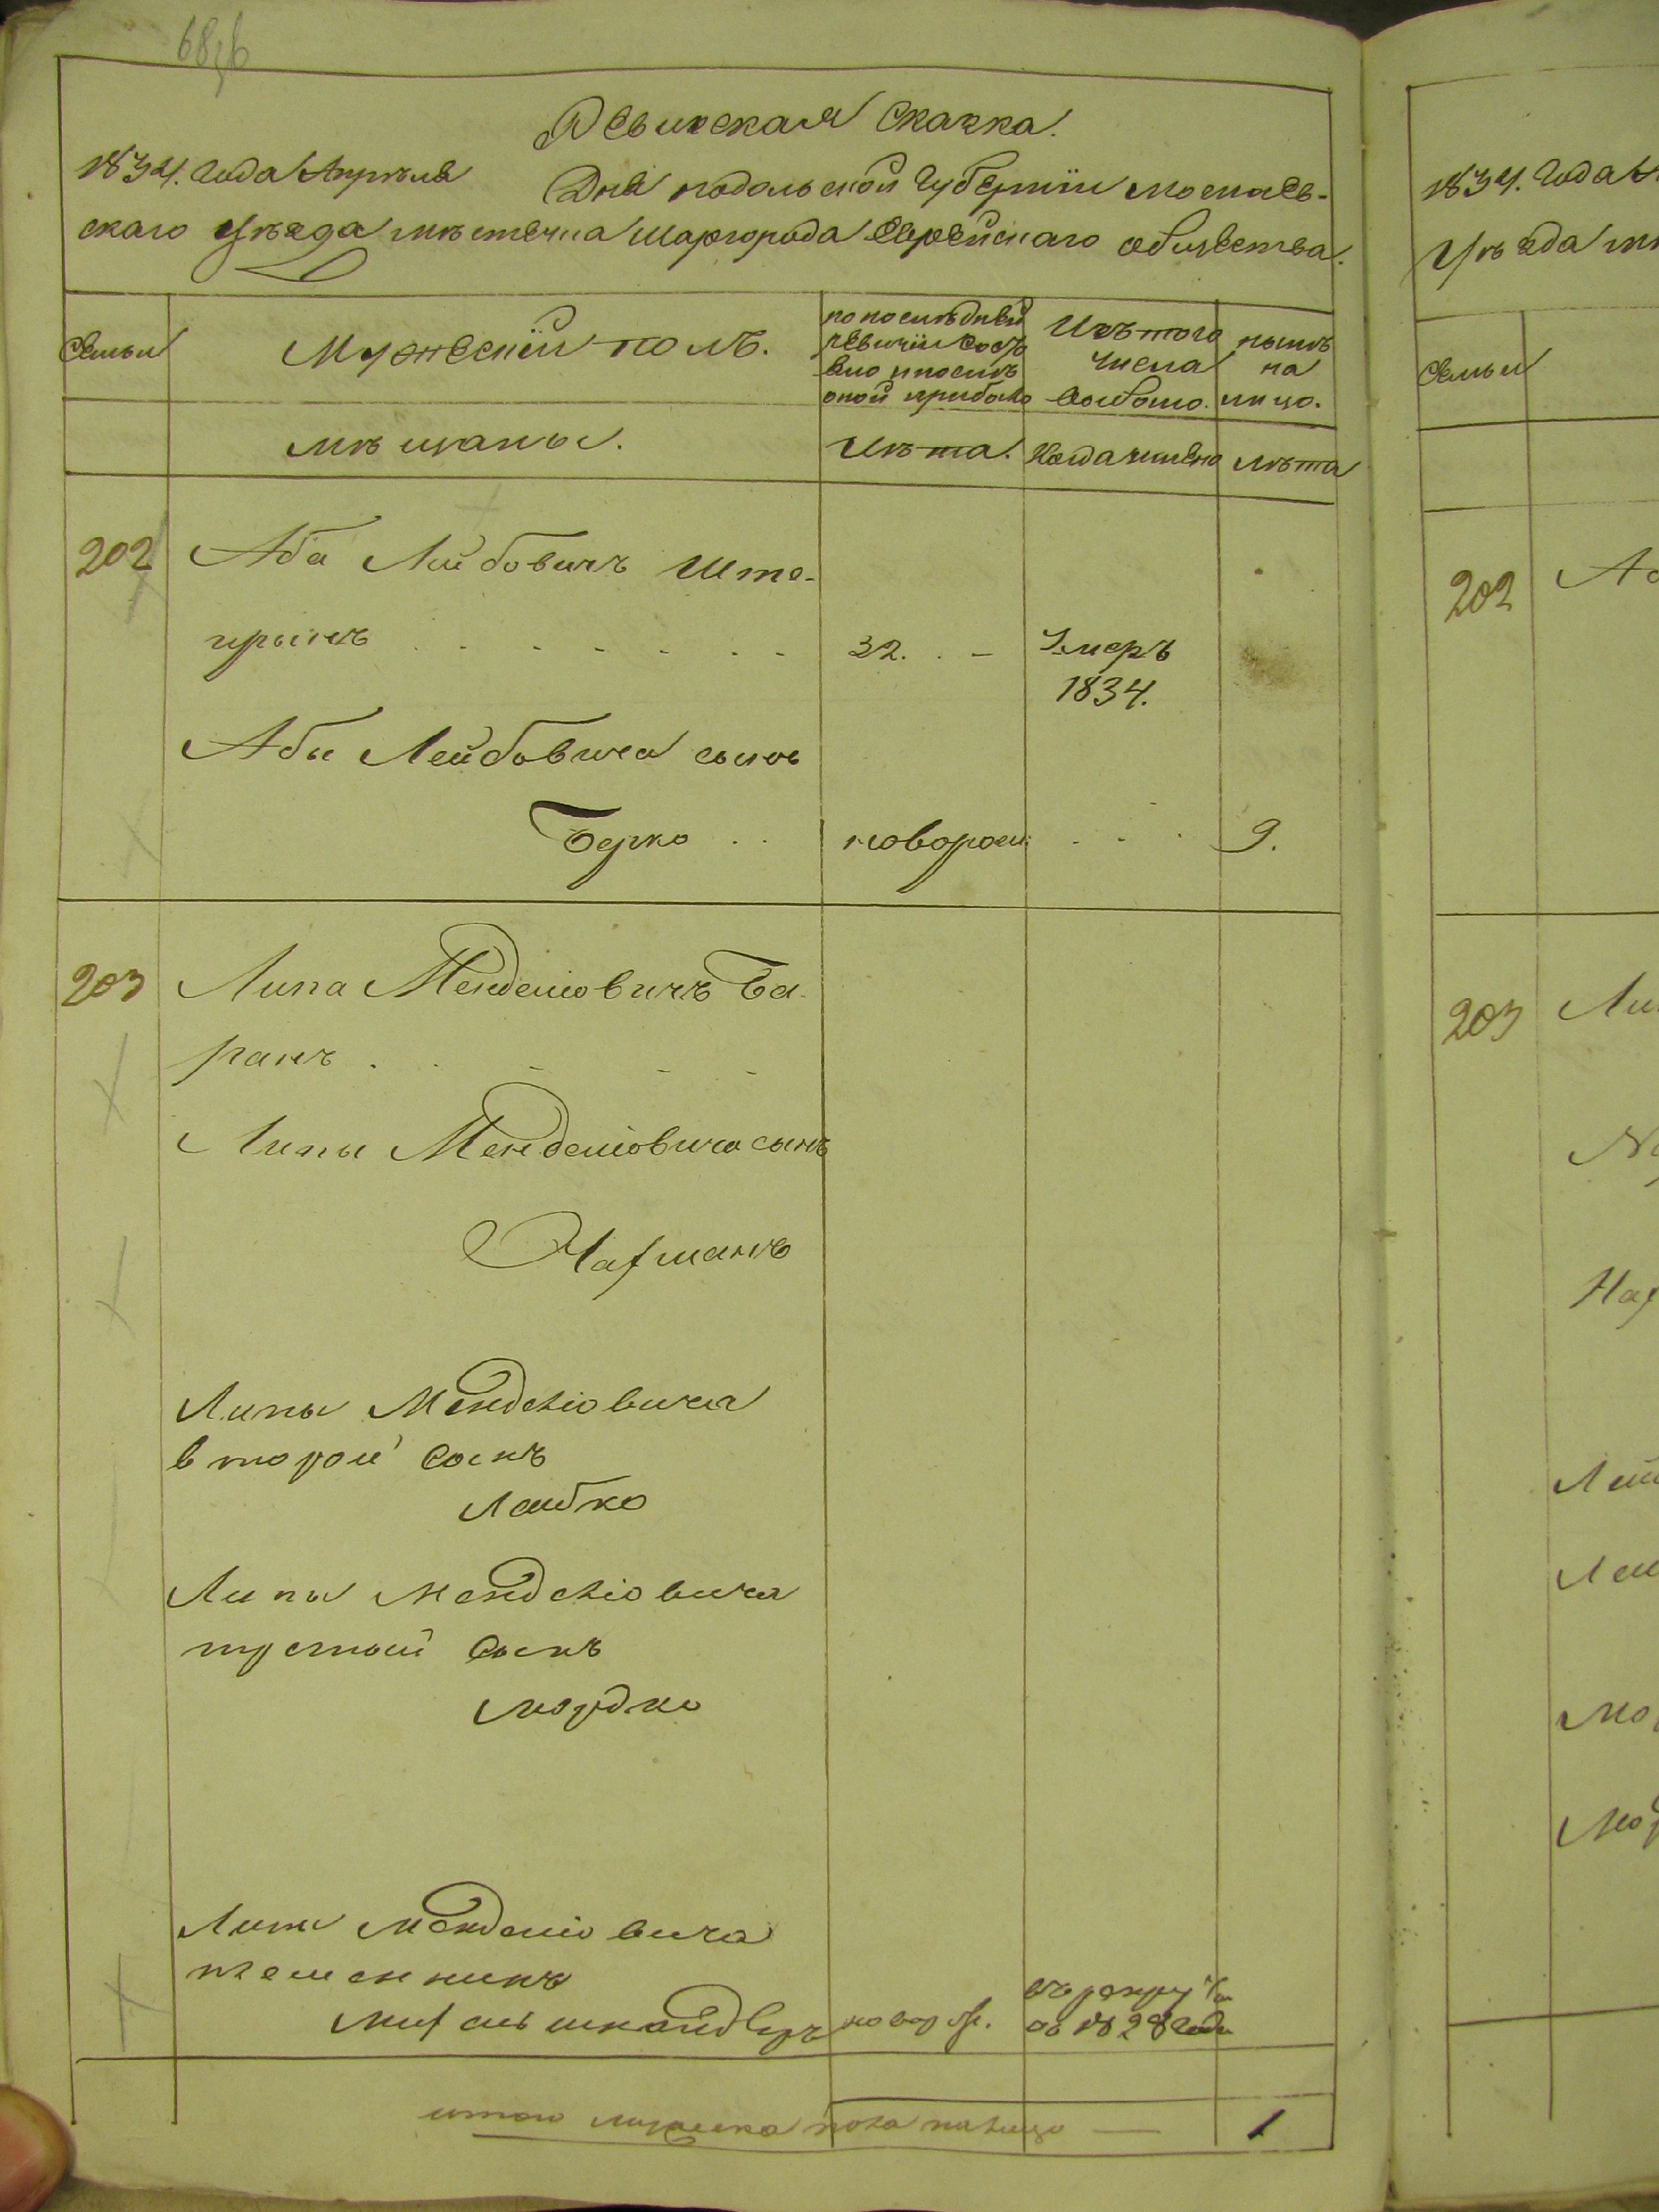 Ревизская сказка.
1834. года Апреля Дня подольской Губернiи могилев-
скаго Уезда местечка Шаргорода Еврейскаго общества.
Семьи
Мужескiй полъ.
по последней
ревизiи состо
яло и после
оной прибыло
Изъ того
числа
выбыло.
ныне
на
лицо.
мещаны.
Лета.
Когда именно
лета
202
Аба Лейбовичъ Ште-
32.
Умеръ
1834.
Абы Лейбовича сынъ
Берко
новорож:
9.
203
Липа Менделiовичъ Ба-
ранъ
Липы Менделiовича сынъ
Нахманъ
Липы Менделiовича
второй сынъ
Лейбко
Липы Менделiовича
третiй сынъ
Мордко
Липы Менделiовича
племенникъ
въ рекру
въ 1828 годе
итого мужеска пола на лицо
1
1834. Года
Уезда
Семьи
202
203